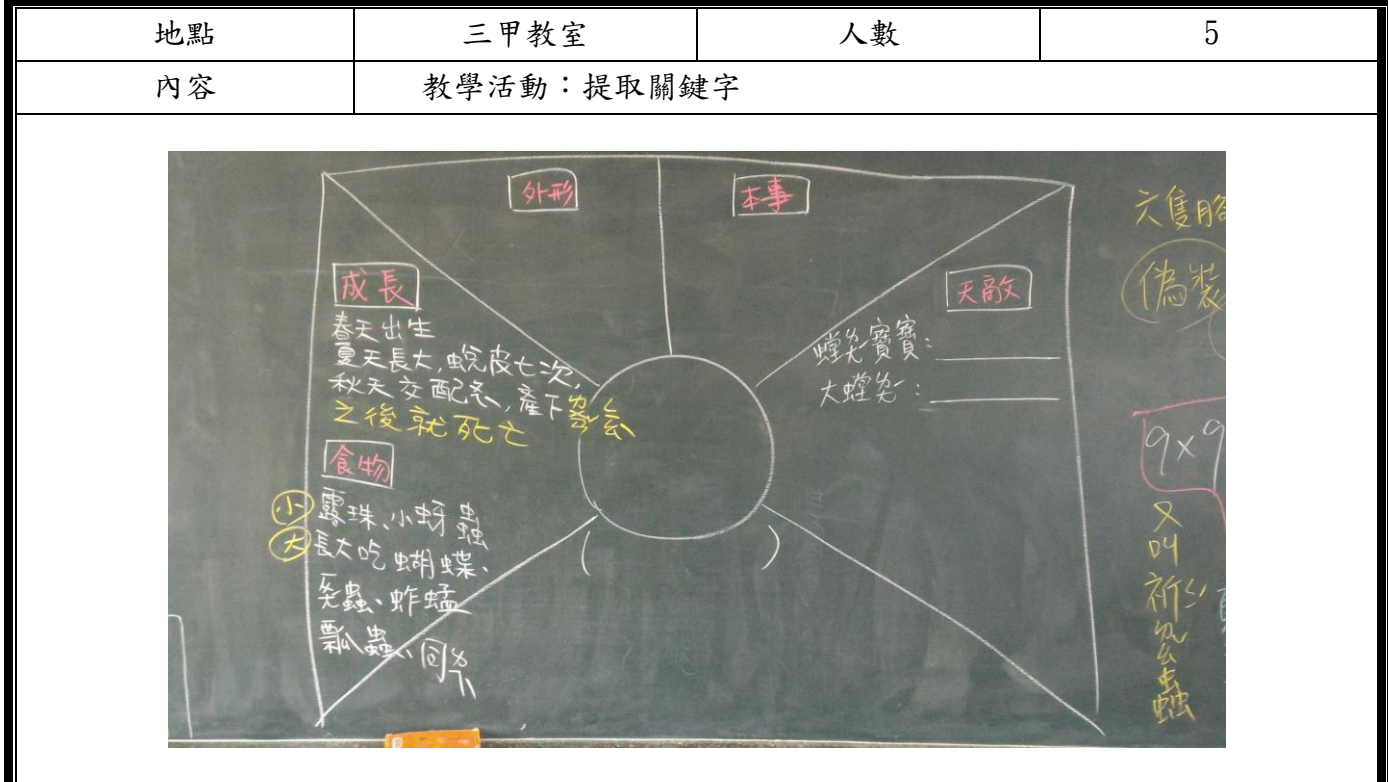 地點 三甲教室 人數 5
內容 教學活動：提取關鍵字
外形
本事
成長
春天出生
夏天長大,蛻皮七次,
秋天交配後,產下
之後就死亡
食物
小 露珠、小蚜蟲
大 長大吃蝴蝶、
蟲、蚱蜢
瓢蟲、同
天敵
螳ㄌㄤˊ寶寶:
大螳ㄌㄤˊ:
( )
六隻腳
偽裝
9×9
又
叫
祈
蟲